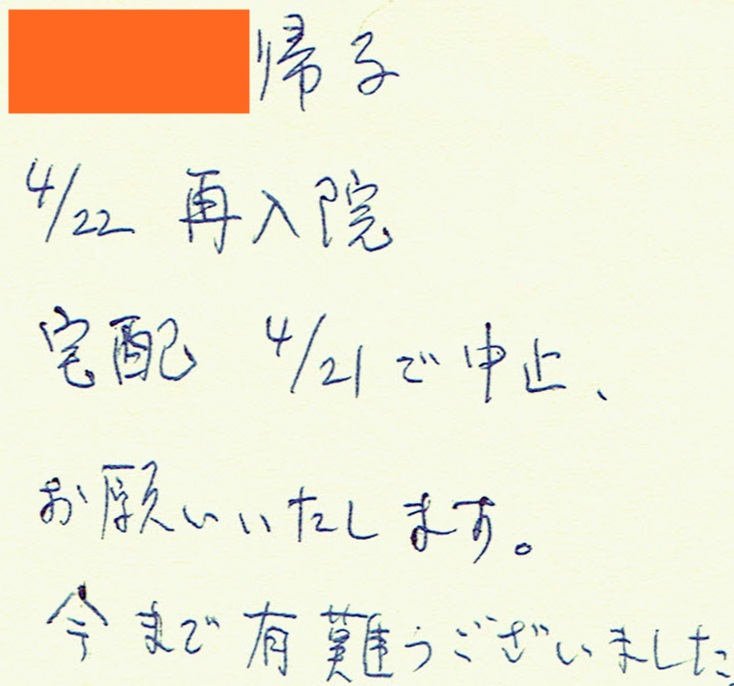 帰子
4/22 再入院
宅配 4/21で中止、
お願いいたします。
今まで有難うございました。